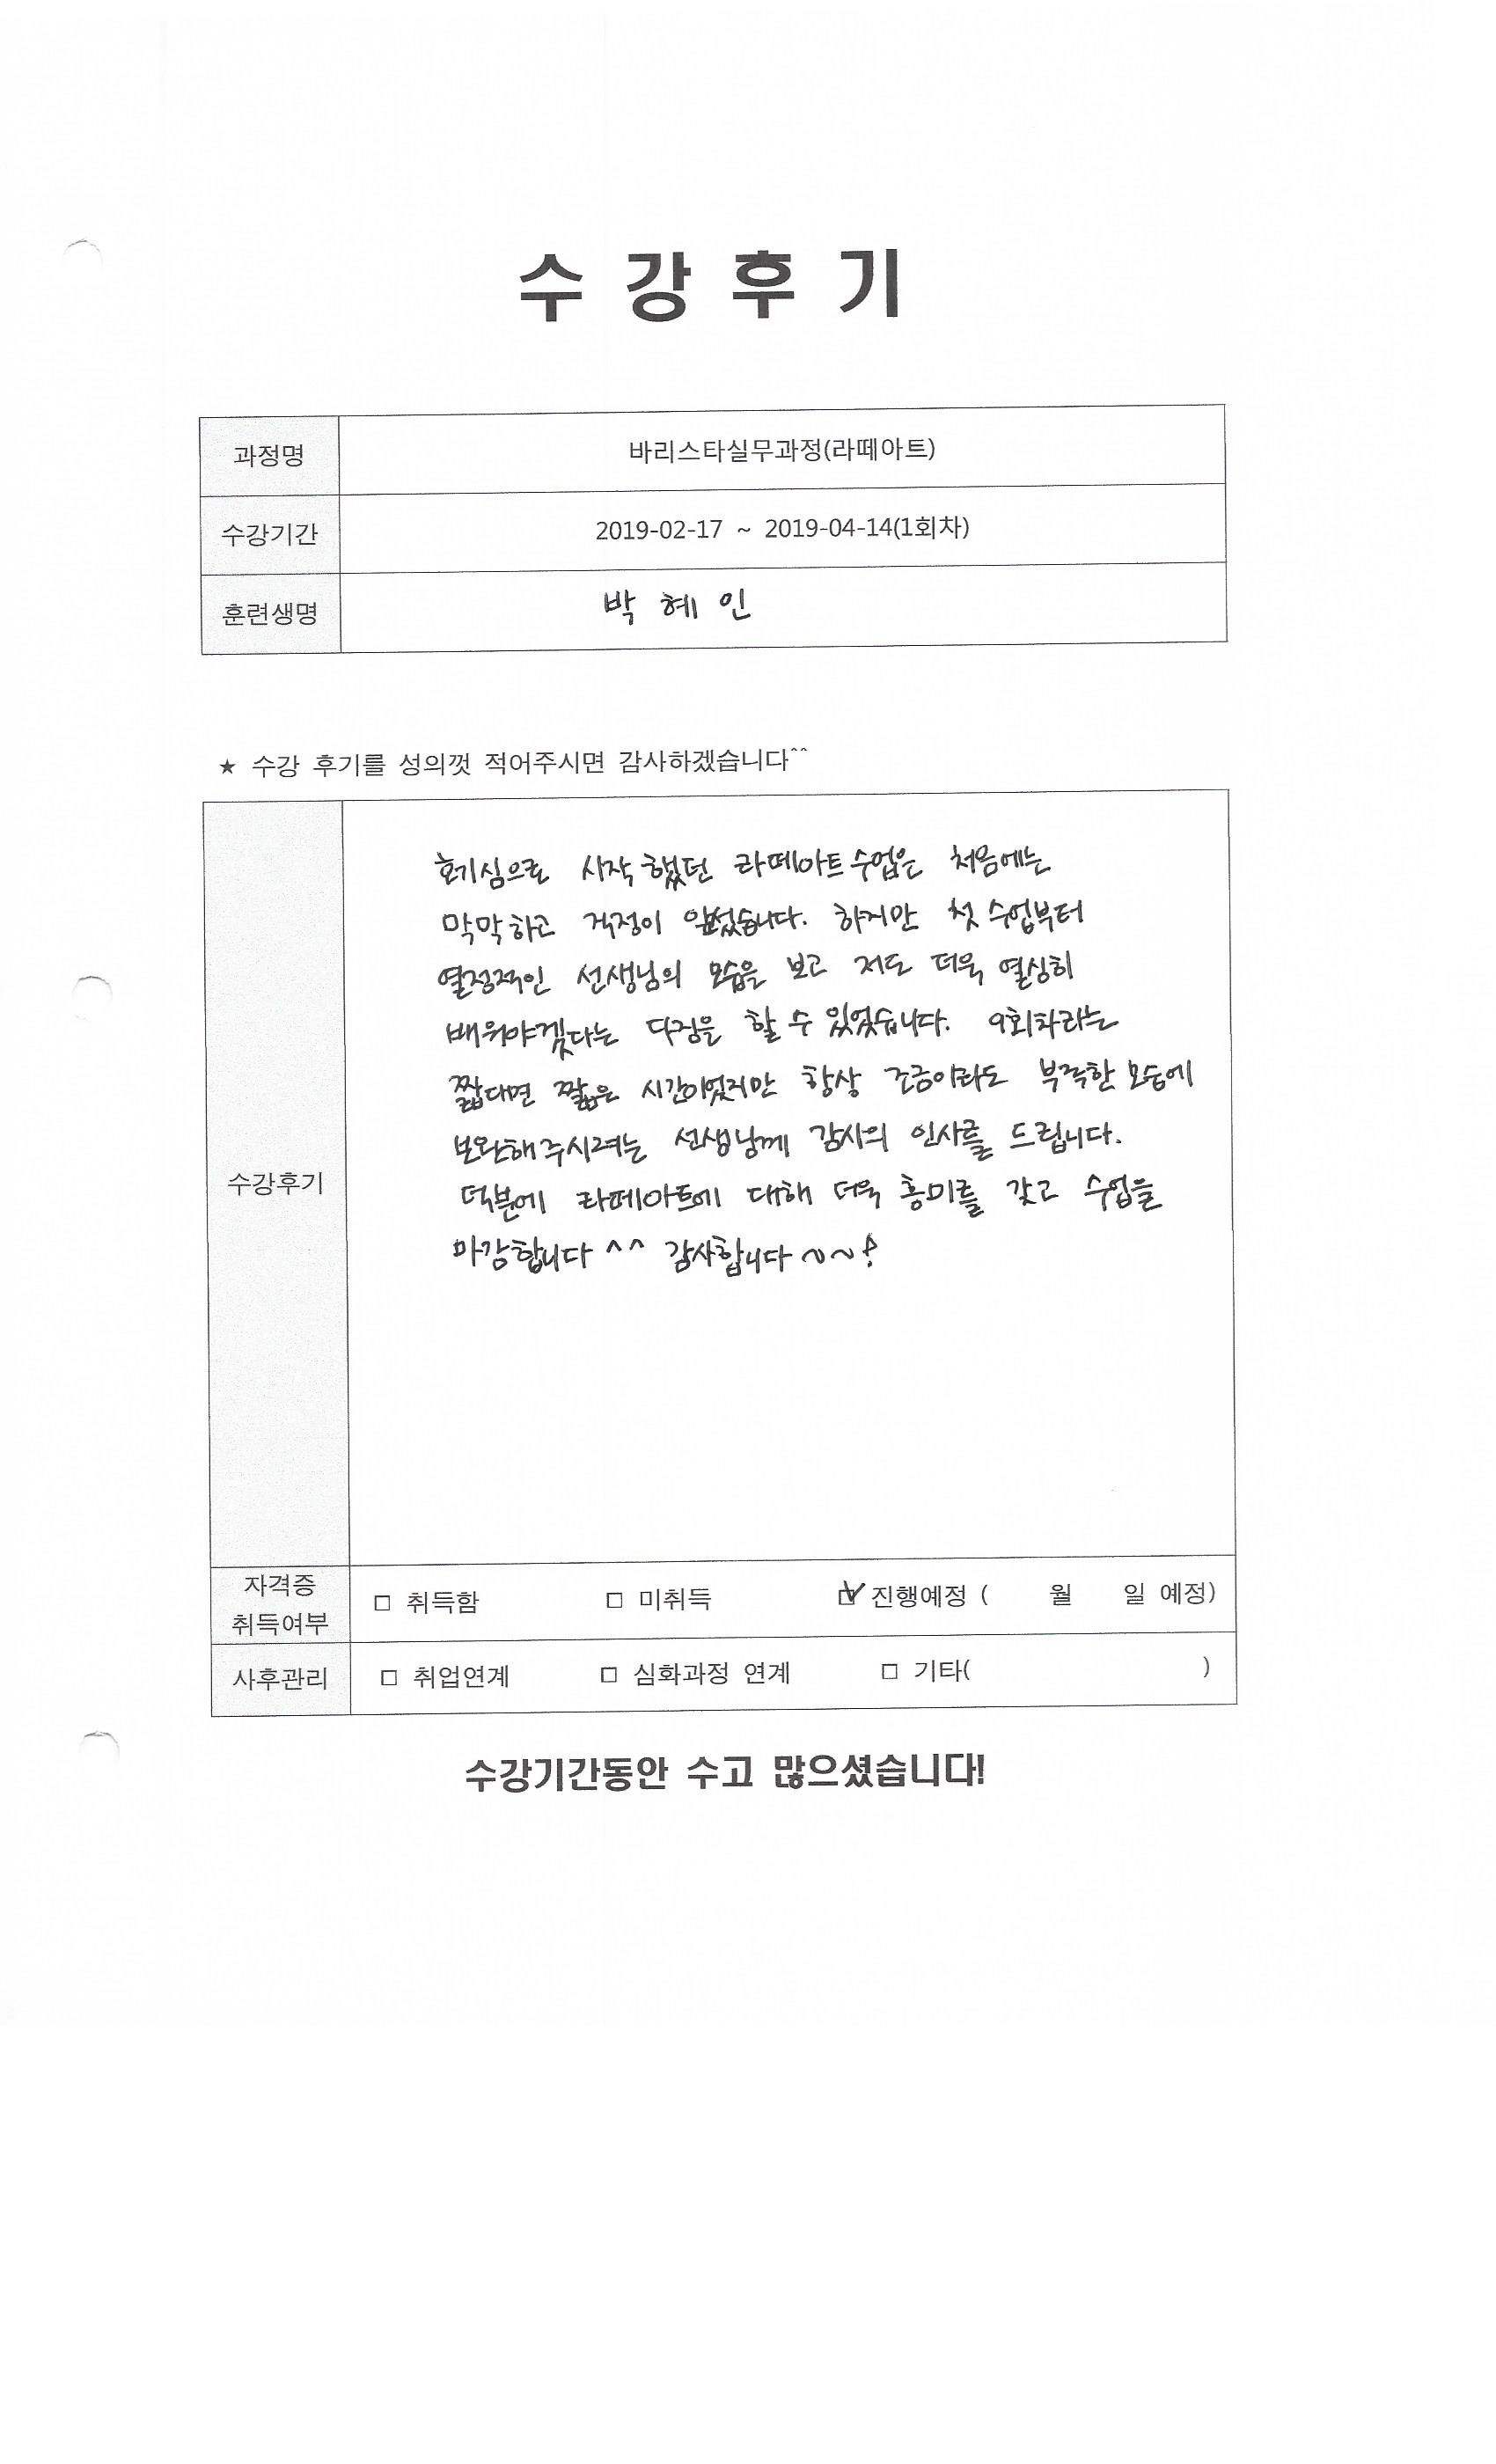 수 강 후 기
과정명 바리스타실무과정(라떼아트)
수강기간 2019-02-17 ~ 2019-04-14(1회차)
훈련생명 박 혜 인
★ 수강 후기를 성의껏 적어주시면 감사하겠습니다^^
호기심으로 시작했던 라떼아트수업은 처음에는
막막하고 걱정이 앞섰습니다. 하지만 첫 수업부터
열정적인 선생님의 모습을 보고 저도 더욱 열심히
배워야겠다는 다짐을 할 수 있었습니다. 9회차라는
짧다면 짧은 시간이었지만 항상 조금이라도 부족한 모습에
보완해주시려는 선생님께 감사의 인사를 드립니다.
수강후기
덕분에 라떼아트에 대해 더욱 흥미를 갖고 수업을
마감합니다 ^^ 감사합니다~~!
자격증
취득여부 □ 취득함 □ 미취득 ☑ 진행예정 ( 월 일 예정)
사후관리 □ 취업연계 □ 심화과정 연계 □ 기타( )
수강기간동안 수고 많으셨습니다!